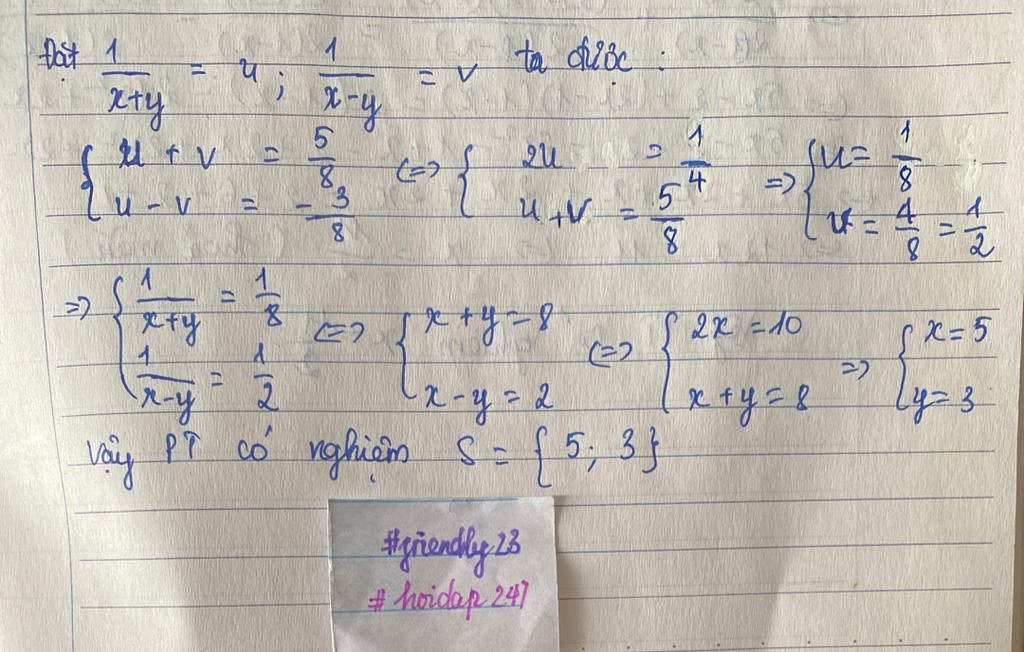 Đặt 1/(x+y) = u ; 1/(x-y) = v ta được :
{ u + v = 5/8 ; u - v = -3/8 (=> { 2u = 1/4 ; u + v = 5/8 => { u = 1/8 ; v = 4/8 = 1/2
=> { 1/(x+y) = 1/8 ; 1/(x-y) = 1/2 (=> { x + y = 8 ; x - y = 2 (=> { 2x = 10 ; x + y = 8 => { x = 5 ; y = 3
vậy PT có nghiệm S = { 5; 3 }
#friendly23
# hoidap 247